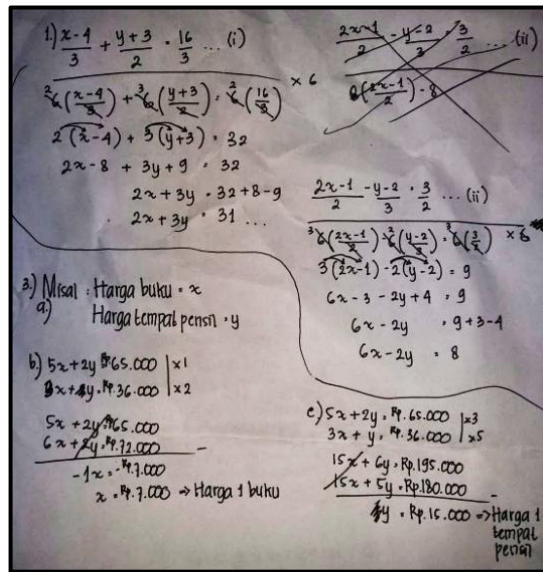 1.) x-4/3 + y+3/2 = 16/3 ... (i)
2 6(x-4/3) + 3 6(y+3/2) = 2 6(16/3) × 6
2(x-4) + 3(y+3) = 32
2x-8 + 3y+9 = 32
2x+3y = 32+8-9
2x+3y = 31 ...
2x-1/2 - y-2/3 = 3/2 ... (ii)
6(2x-1/2) - 8
2x-1/2 - y-2/3 = 3/2 ... (ii)
3 6(2x-1/2) - 2 6(y-2/3) = 3 6(3/2) × 6
3(2x-1) - 2(y-2) = 9
6x - 3 - 2y + 4 = 9
6x - 2y = 9+3-4
6x - 2y = 8
3.) Misal : Harga buku = x
a.) Harga tempat pensil = y
b.) 5x + 2y = Rp.65.000 | ×1
3x + y = Rp.36.000 | ×2
5x + 2y = Rp.65.000
6x + 2y = Rp.72.000 -
-1x = -Rp.7.000
x = Rp.7.000 ⇒ Harga 1 buku
c.) 5x + 2y = Rp. 65.000 | ×3
3x + y = Rp. 36.000 | ×5
15x + 6y = Rp.195.000
15x + 5y = Rp.180.000 -
y = Rp.15.000 ⇒ Harga 1
tempat
pensil